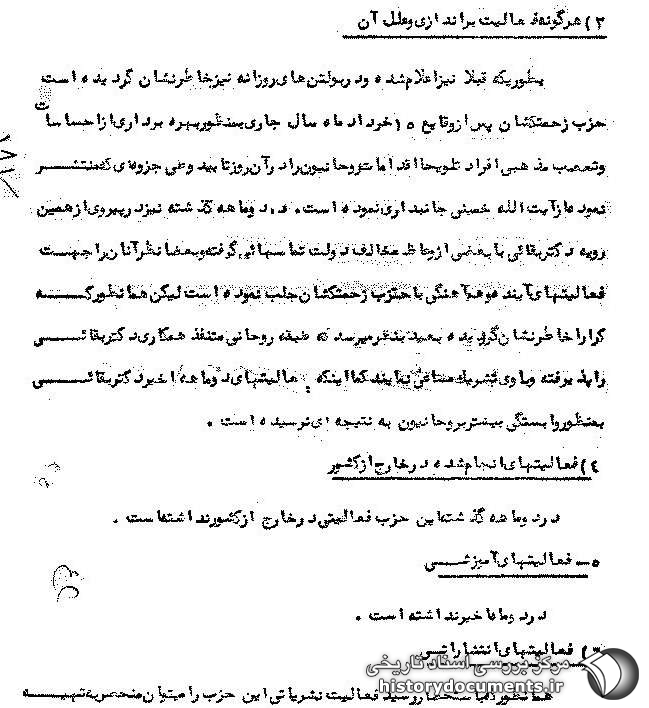 ۳) هرگونه فعالیت براندازی و علل آن
بطوریکه قبلا نیز اعلام شده و در بولتن های روزانه نیز خاطرنشان گردیده است
حزب زحمتکشان پس از وقایع ۱۵ خرداد ماه سال جاری بمنظور بهره برداری از احساسات
و تعصب مذهبی افراد تلویحا اقدامات روحانیون را در آن روز تایید و طی جزوه ای که منتشر
نموده از آیت الله خمینی جانبداری نموده است. در دو ماهه گذشته نیز در پیروی از همین
رویه دکتر بقائی با بعضی از وعاظ مخالف دولت تماسهائی گرفته و بعضا نظر آنان را جهت
فعالیتهای آینده و هم آهنگی با حزب زحمتکشان جلب نموده است لیکن همانطور که
کرارا خاطرنشان گردیده بعید بنظر میرسد که طبقه روحانی متنفذ همکاری دکتر بقائی
را پذیرفته و با وی تشریک مساعی نمایند کما اینکه فعالیتهای دو ماهه اخیر دکتر بقائی
بمنظور وابستگی بیشتر بروحانیون به نتیجه ای نرسیده است .
۴) فعالیتهای انجام شده در خارج از کشور
در دو ماهه گذشته این حزب فعالیتی در خارج از کشور نداشته است .
۵- فعالیتهای آموزشی
در دو ماه اخیر نداشته است .
۶) فعالیتهای انتشاراتی
همانطور که استحضار دارید فعالیت نشریاتی این حزب را میتوان منحصر به تهیه
مرکز بررسی اسناد تاریخی
historydocuments.ir